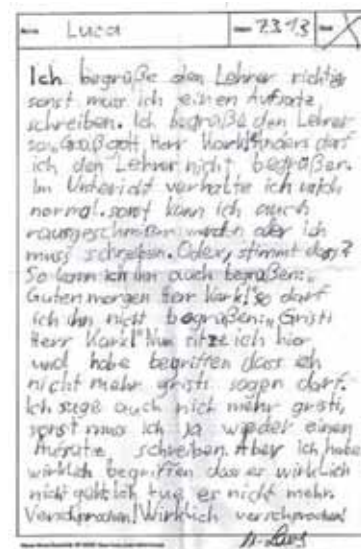 Luca 7.3.13
Ich begrüße den Lehrer richtig
sonst muss ich einen Aufsatz
schreiben. Ich begrüße den Lehrer
so: Grüß gott, Herr Karkl anders darf
ich den Lehrer nicht begrüßen.
Im Unterricht verhalte ich mich
normal. sonst kann ich auch
rausgeschmißen werden oder ich
muss schreiben. Oder, stimmt das?
So kann ich ihn auch begrüßen: „
Guten morgen Herr Karkl" so darf
ich ihn nicht begrüßen: „Gristi
Herr Karkl" Nun sitze ich hier
und habe begriffen dass ich
nicht mehr gristi sagen darf.
Ich sage auch nich mehr gristi,
sonst muss ich ja wieder einen
Aufsatz schreiben. Aber ich habe
wirklich begriffen das es wirklich
nicht geht. Ich tue es nicht mehr.
Versprochen! Wirklich versprochen!